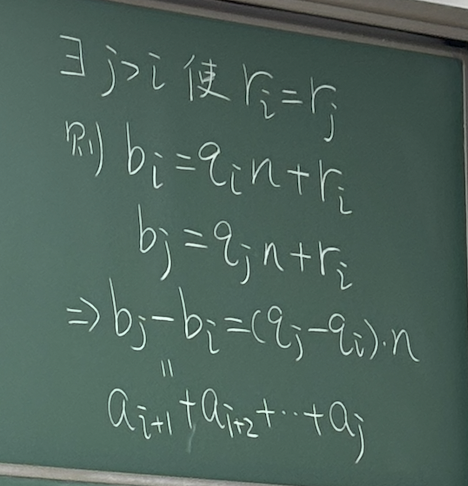 ∃ j>i 使 r_i=r_j
则 b_i=q_i n+r_i
b_j=q_j n+r_i
⇒ b_j-b_i=(q_j-q_i)·n
=
a_{i+1}+a_{i+2}+…+a_j